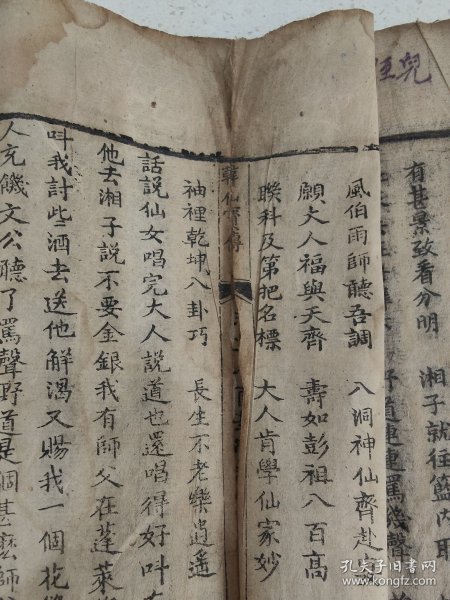 兒
有甚景致看分明 湘子就往籃內取
野道連連罵幾聲
風伯雨師聽吾調 八洞神仙齊赴
願大人福與天齊 壽如彭祖八百高
聯科及第把名標 大人肯學仙家妙
韓仙寶傳
袖裡乾坤八卦巧 長生不老樂逍遥
話說仙女唱完大人說道也還唱得好叫
他去湘子說不要金銀我有師父在蓬萊
叫我討些酒去送他解渴又賜我一個花
人充饑文公聽了罵聲野道是個甚麽師
孔夫子旧书网